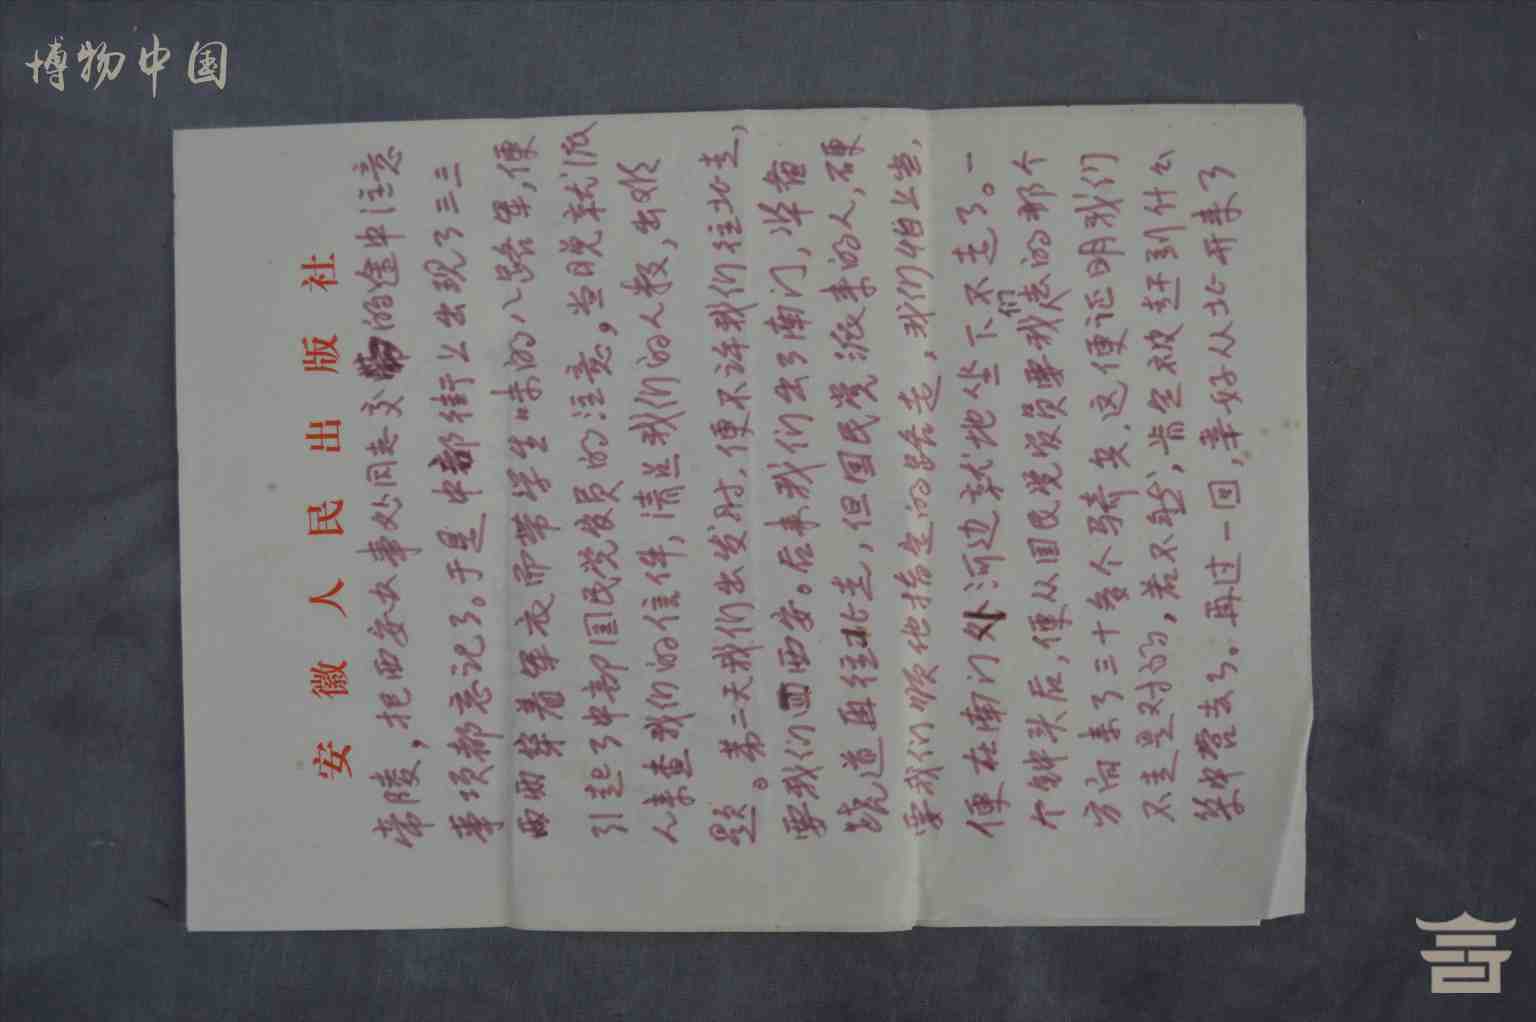 博物中国
安徽人民出版社
帝陵，把西安办事处同志交的途中注意
事项都忘记了。于是中部街上出现了三三
两两穿着军衣而带学生味的八路军，便
引起了中部国民党党员的注意。当晚就派
人来查我们的住件，清点我们的人数，出难
题。第二天我们出发时，便不许我们往北走，
要我们回西安。后来我们出了南门，准备
绕道再往北走，但国民党派来的人，硬
要我们顺他指定的路走，我们怕上当，
便在南门外河边就地坐下不走了。一
个钟头后，便从国民党员要我们走的那个
方向来了三十多个骑兵，这便证明我们
不走是对的，若不然，肯定被赶到什么
集中营去了。再过一回，幸好从北开来了